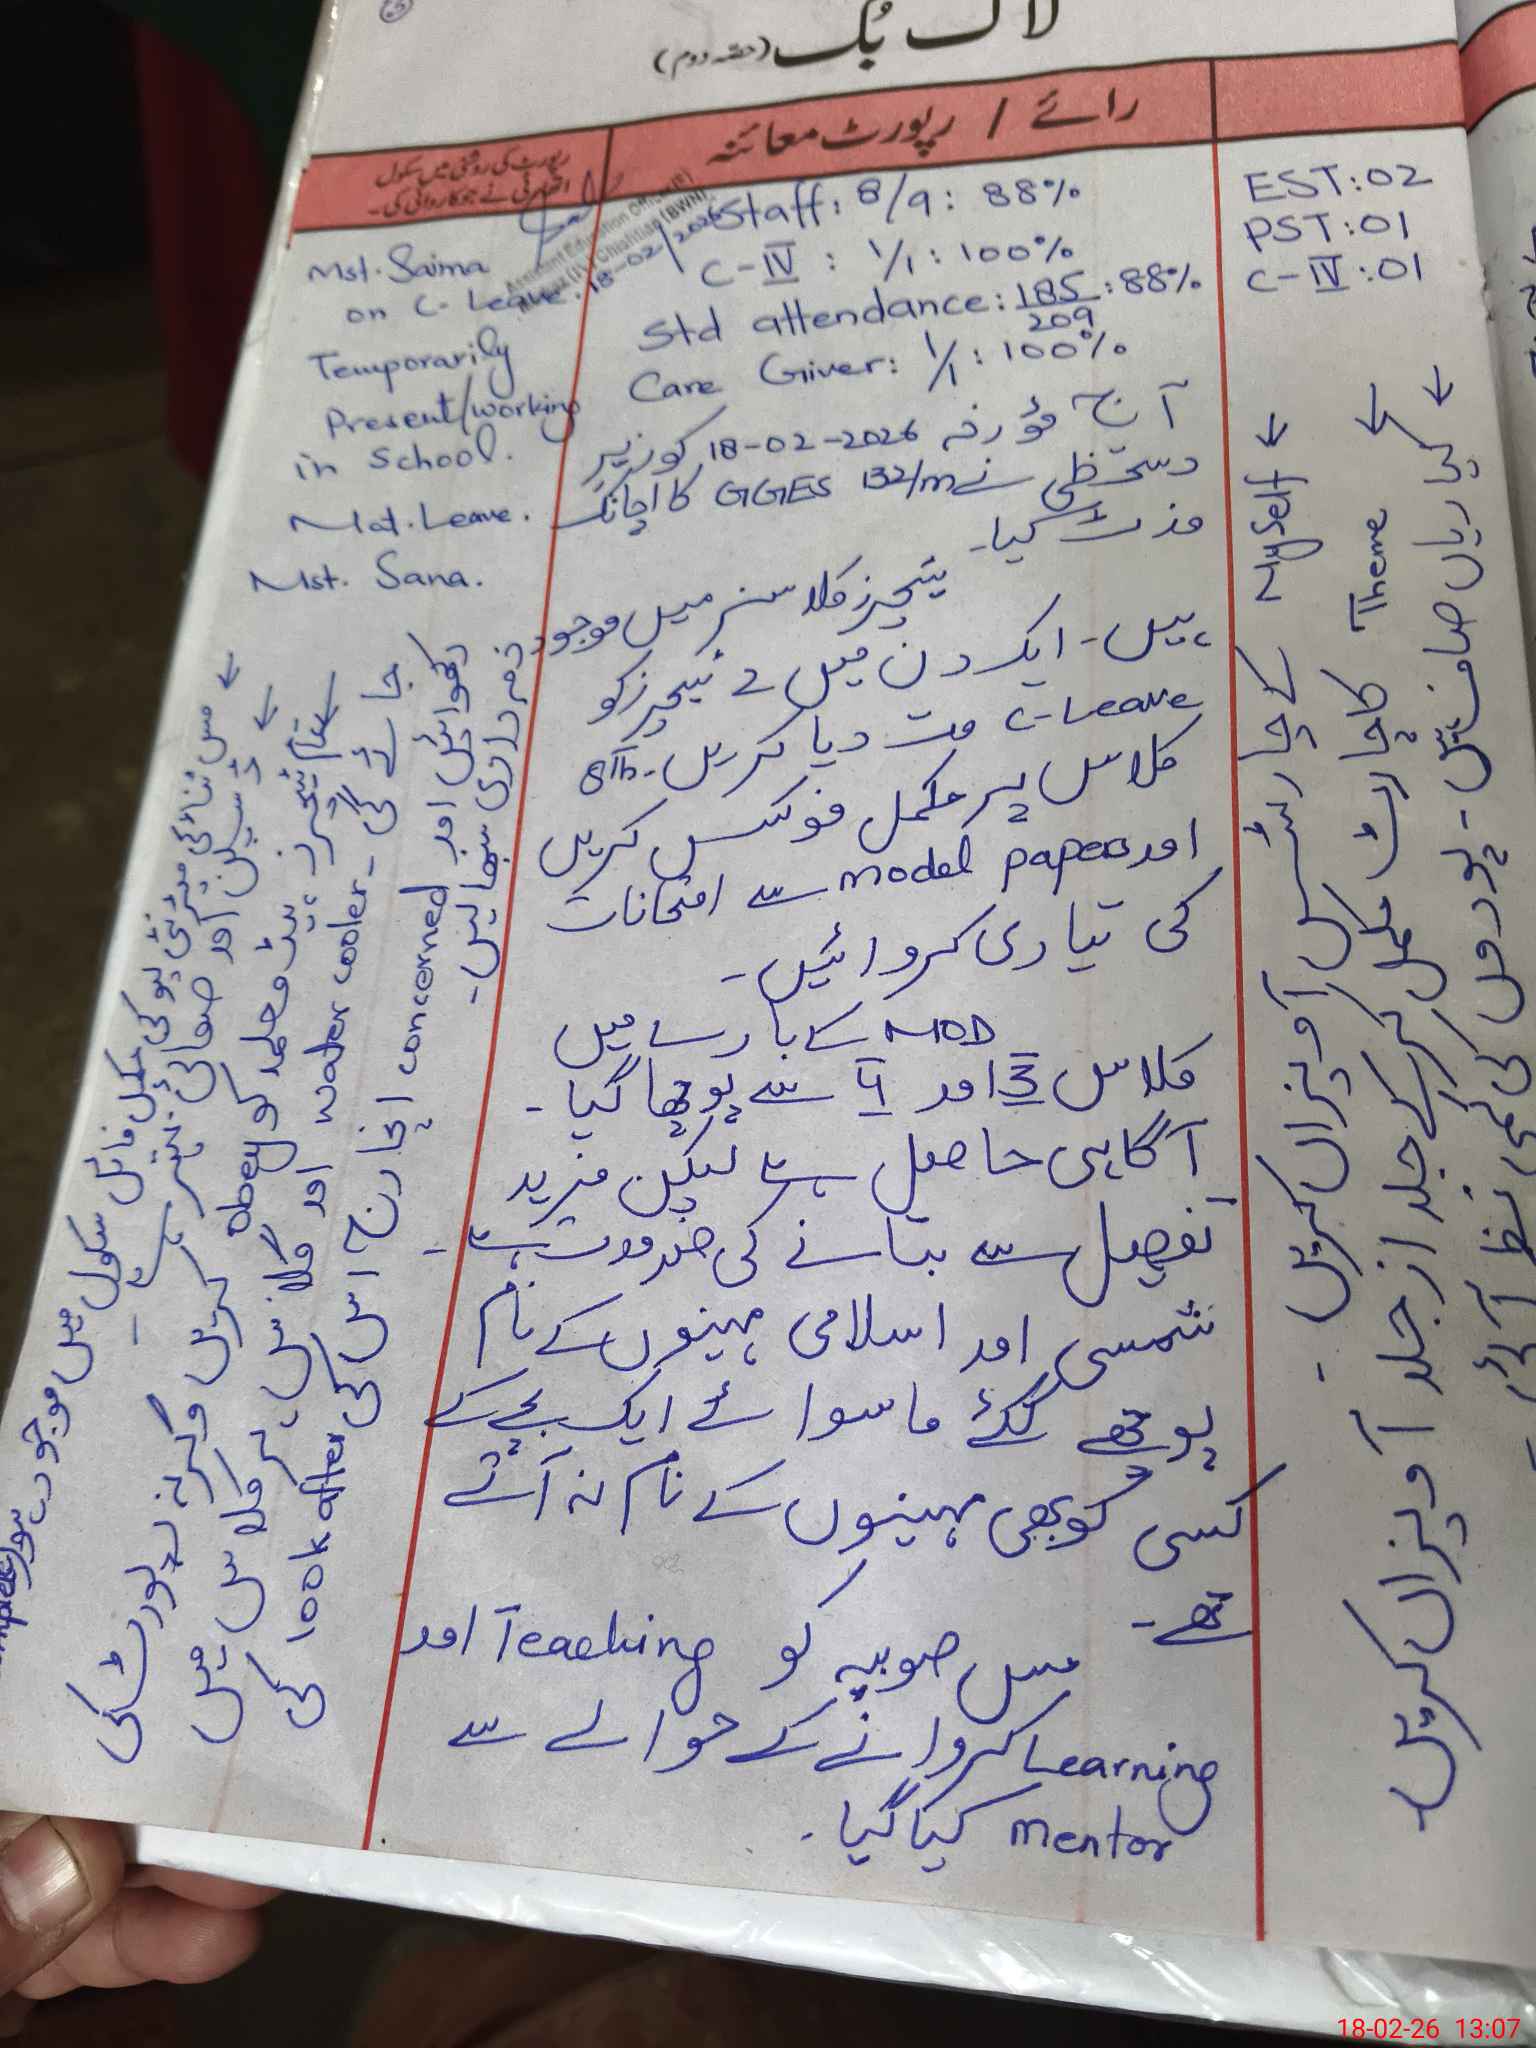 لاگ بُک (حصّہ دوم)
رائے / رپورٹ معائنہ
رپورٹ کی روشنی میں سکول
اتھارٹی نے جو کارروائی کی۔
EST:02
PST:01
C-IV:01
Staff: 8/9: 88%
C-IV : 1/1: 100%
Std attendance: 185/209 : 88%
Care Giver: 1/1: 100%
آج مؤرخہ 18-02-2026 کو زیرِ
دستخطی نے GGES 132/m کا اچانک
وزٹ کیا۔
ٹیچرز کلاسز میں موجود
ہیں۔ ایک دن میں 2 ٹیچرز کو
C-Leave مت دیا کریں۔ 8th
کلاس پر مکمل فوکس کریں
اور model papers سے امتحانات
کی تیاری کروائیں۔
MOD کے بارے میں
کلاس 3 اور 4 سے پوچھا گیا۔
آگاہی حاصل ہے لیکن مزید
تفصیل سے بتانے کی ضرورت ہے۔
شمسی اور اسلامی مہینوں کے نام
پوچھے گئے ماسوائے ایک بچے کے
کسی کو بھی مہینوں کے نام نہ آتے
تھے۔
مس صوبیہ کو Teaching اور
Learning کروانے کے حوالے سے
mentor کیا گیا۔
Mst. Saima
on C-Leave.
18-02/2026
Assistant Education Officer
Temporarily
Present/working
in School.
Mat. Leave.
Mst. Sana.
مس ثنا کی میٹرنٹی لیو کی مکمل فائل سکول میں موجود ہو
ڈسپلن اور صفائی بہتر ہے۔
تمام ٹیچرز ہیڈ معلمہ کو obey کریں وگرنہ رپورٹ کی
جائے گی۔ water cooler اور کلاس پر کلاس میں
رکھوائیں اور concerned انچارج اس کی look after کی
ذمہ داری سبھالیں۔
Myself کے چارٹس آویزاں کریں۔
Theme کا چارٹ مکمل کر کے جلد از جلد آویزاں کریں۔
کیاریاں صاف ہیں۔ پودوں کی کمی نظر آئی
18-02-26 13:07